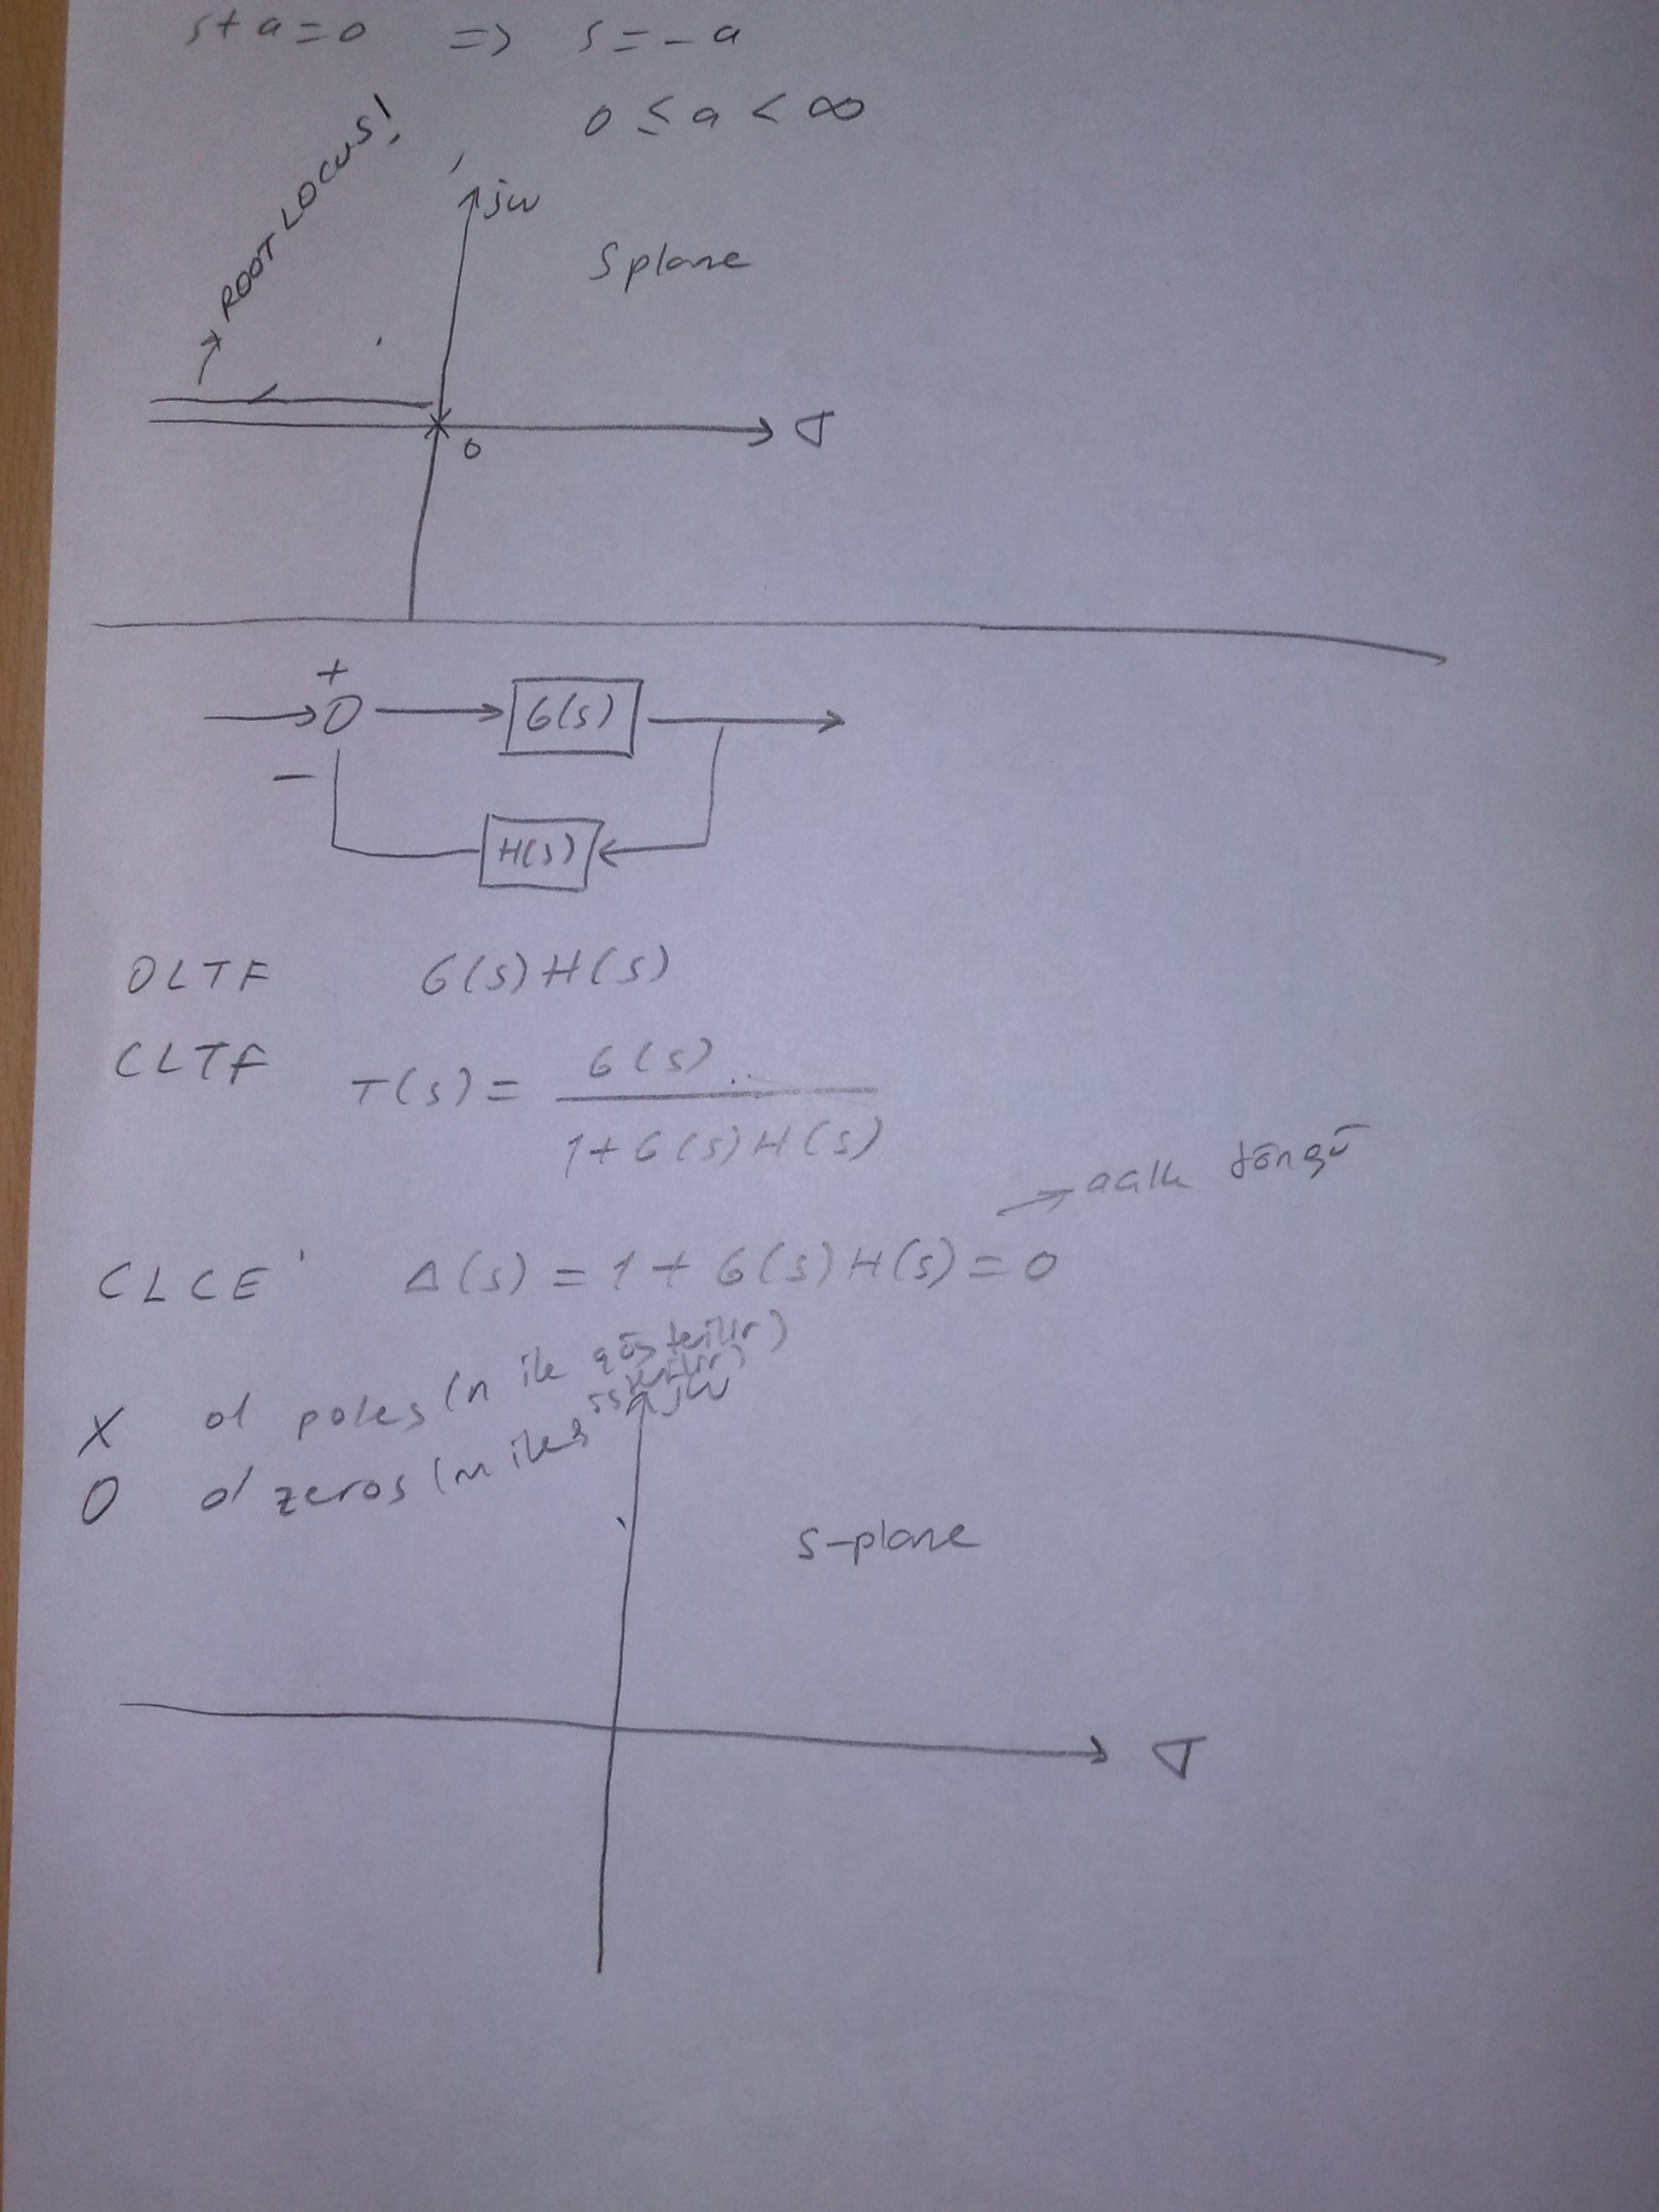 s+a=0 => s=-a
0 ≤ a < ∞
ROOT LOCUS!
jw
S plane
σ
0
+
G(s)
-
H(s)
OLTF G(s)H(s)
CLTF T(s) = G(s) / 1+G(s)H(s)
→ açık döngü
CLCE Δ(s) = 1 + G(s)H(s) = 0
X ol poles (n ile gösterilir)
O ol zeros (m ile
jw
s-plane
σ